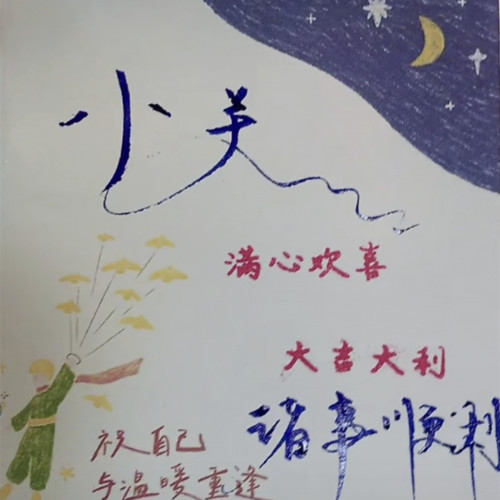 小关
满心欢喜
大吉大利
诸事顺利
祝自己
与温暖重逢